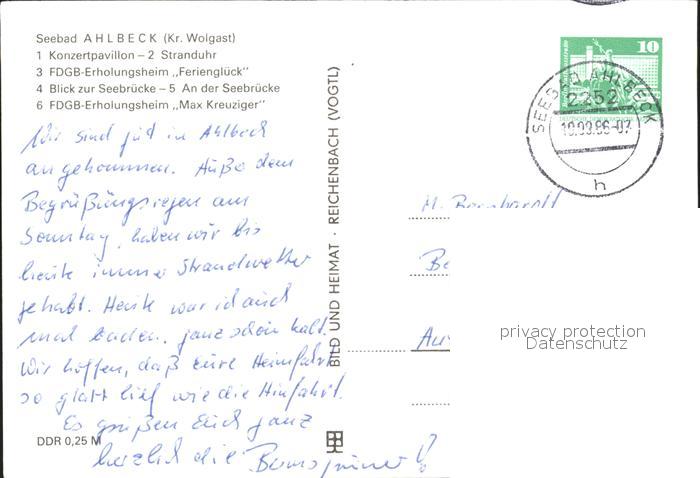 Seebad AHLBECK (Kr. Wolgast)
1 Konzertpavillon – 2 Stranduhr
3 FDGB-Erholungsheim „Ferienglück"
4 Blick zur Seebrücke – 5 An der Seebrücke
6 FDGB-Erholungsheim „Max Kreuziger"
Wir sind gut in Ahlbeck
angekommen. Außer dem
Begrüßungsregen am
Sonntag, haben wir bis
heute immer Strandwetter
gehabt. Heute war ich auch
mal baden, ganz schön kalt.
Wir hoffen, daß eure Heimfahrt
so glatt lief wie die Hinfahrt.
Es grüßen Euch ganz
herzlich die
DDR 0,25 M
BILD UND HEIMAT · REICHENBACH (VOGTL)
10
SEEBAD AHLBECK
2252
10.09.86-07
h
privacy protection
Datenschutz